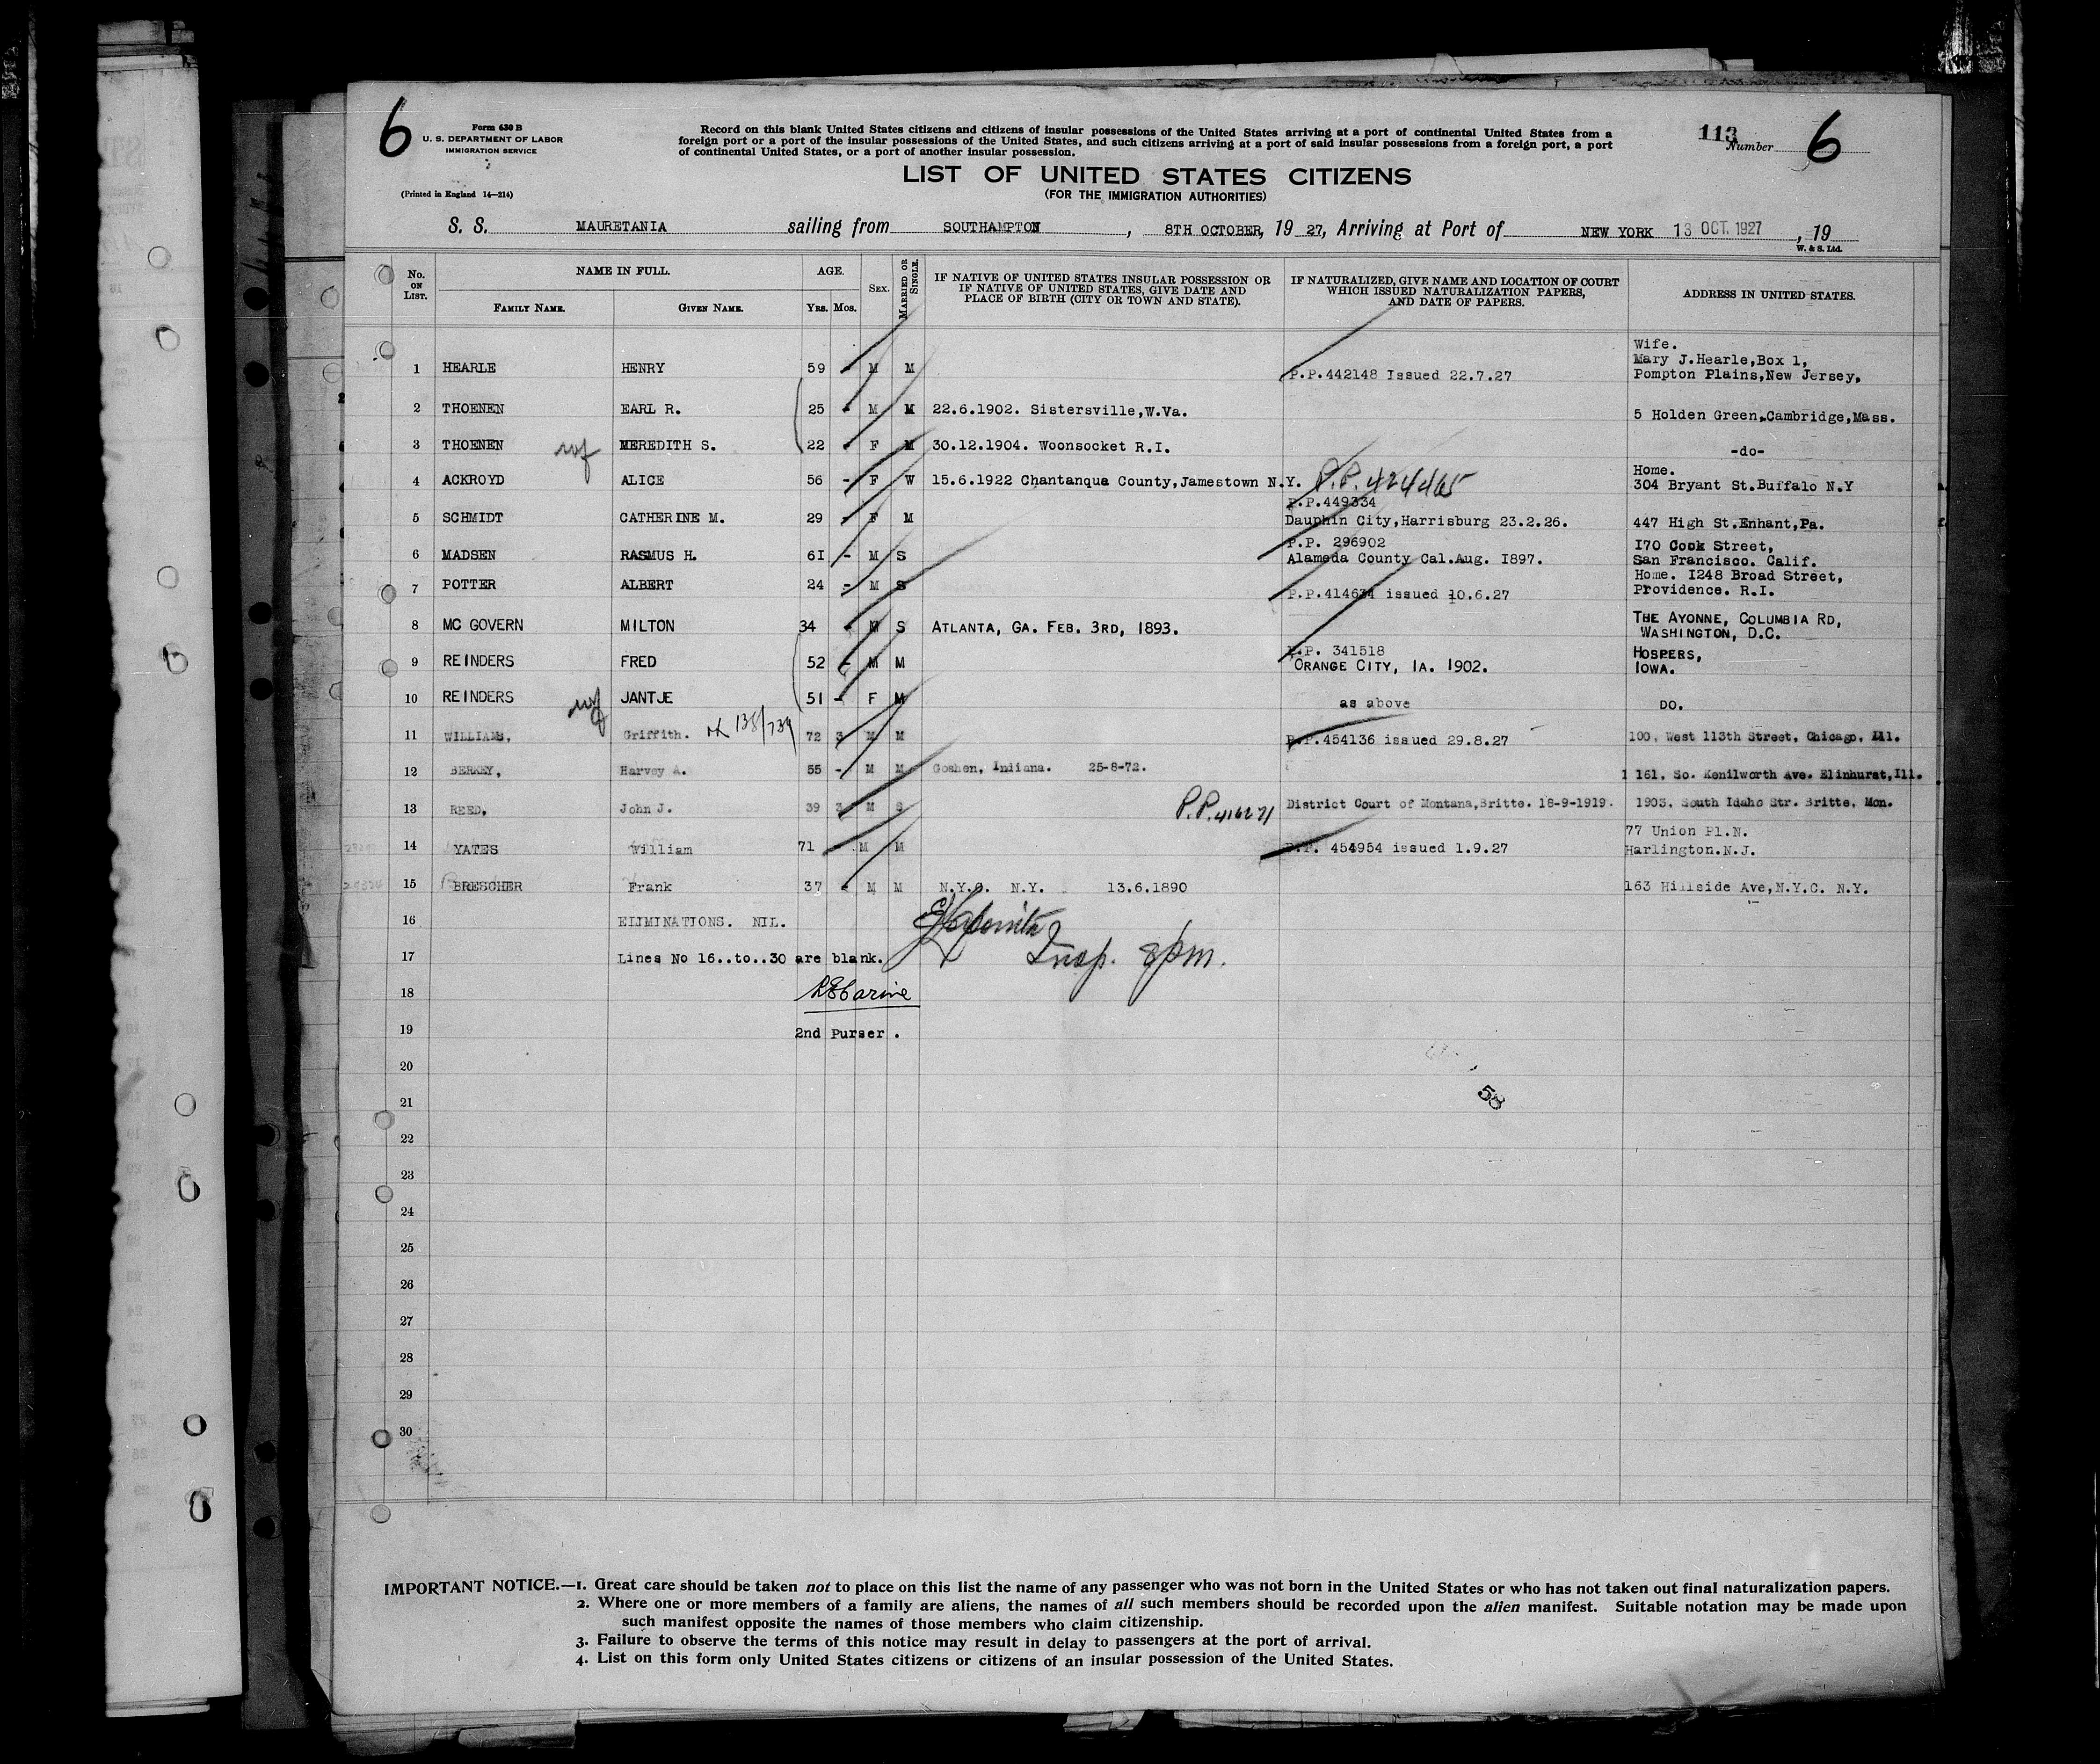 6
Form 630 B
U. S. DEPARTMENT OF LABOR
IMMIGRATION SERVICE
(Printed in England 14—214)
Record on this blank United States citizens and citizens of insular possessions of the United States arriving at a port of continental United States from a
foreign port or a port of the insular possessions of the United States, and such citizens arriving at a port of said insular possessions from a foreign port, a port
of continental United States, or a port of another insular possession.
113
Number 6
LIST OF UNITED STATES CITIZENS
(FOR THE IMMIGRATION AUTHORITIES)
S. S. MAURETANIA sailing from SOUTHAMPTON, 8TH OCTOBER, 19 27, Arriving at Port of NEW YORK 13 OCT. 1927, 19
W. & S. Ltd.
No. ON LIST. NAME IN FULL. AGE. SEX. MARRIED OR SINGLE. IF NATIVE OF UNITED STATES INSULAR POSSESSION OR IF NATIVE OF UNITED STATES, GIVE DATE AND PLACE OF BIRTH (CITY OR TOWN AND STATE). IF NATURALIZED, GIVE NAME AND LOCATION OF COURT WHICH ISSUED NATURALIZATION PAPERS, AND DATE OF PAPERS. ADDRESS IN UNITED STATES.
FAMILY NAME. GIVEN NAME. YRS. MOS.
Wife.
Mary J.Hearle,Box 1,
1 HEARLE HENRY 59 - M M P.P.442148 Issued 22.7.27 Pompton Plains,New Jersey,
2 THOENEN EARL R. 25 - M M 22.6.1902. Sistersville,W.Va. 5 Holden Green,Cambridge,Mass.
3 THOENEN wf MEREDITH S. 22 - F M 30.12.1904. Woonsocket R.I. -do-
Home.
4 ACKROYD ALICE 56 - F W 15.6.1922 Chantanqua County,Jamestown N.Y. P.P. 424465 304 Bryant St.Buffalo N.Y
P.P.449334
5 SCHMIDT CATHERINE M. 29 - F M Dauphin City,Harrisburg 23.2.26. 447 High St.Enhant,Pa.
P.P. 296902 I70 Cook Street,
6 MADSEN RASMUS H. 6I - M S Alameda County Cal.Aug. I897. San Francisco. Calif.
Home. I248 Broad Street,
7 POTTER ALBERT 24 - M S P.P.414634 issued 10.6.27 Providence. R.I.
8 MC GOVERN MILTON 34 - M S ATLANTA, GA. FEB. 3RD, 1893. THE AYONNE, COLUMBIA RD,
WASHINGTON, D.C.
P.P. 341518 HOSPERS,
9 REINDERS FRED 52 - M M ORANGE CITY, IA. 1902. IOWA.
10 REINDERS wf JANTJE 51 - F M as above DO.
11 WILLIAMS, Griffith. 138/739 72 3 M M P.P.454136 issued 29.8.27 100, West 113th Street, Chicago, Ill.
12 BERKEY, Harvey A. 55 - M M Goshen, Indiana. 25-8-72. 1 161, So. Kenilworth Ave. Elinhurst,Ill.
13 REED, John J. 39 3 M S P.P. 416271 District Court of Montana,Britte. 18-9-1919. 1903, South Idaho Str. Britte, Mon.
77 Union Pl.N.
14 YATES William 71 M M P.P. 454954 issued 1.9.27 Harlington.N.J.
15 BRESCHER Frank 37 - M M N.Y.C. N.Y. 13.6.1890 163 Hillside Ave,N.Y.C. N.Y.
16 ELIMINATIONS. NIL.
17 Lines No 16..to..30 are blank. Insp. 8pm.
18
19 2nd Purser .
20
21 58
22
23
24
25
26
27
28
29
30
IMPORTANT NOTICE.—1. Great care should be taken not to place on this list the name of any passenger who was not born in the United States or who has not taken out final naturalization papers.
2. Where one or more members of a family are aliens, the names of all such members should be recorded upon the alien manifest. Suitable notation may be made upon
such manifest opposite the names of those members who claim citizenship.
3. Failure to observe the terms of this notice may result in delay to passengers at the port of arrival.
4. List on this form only United States citizens or citizens of an insular possession of the United States.